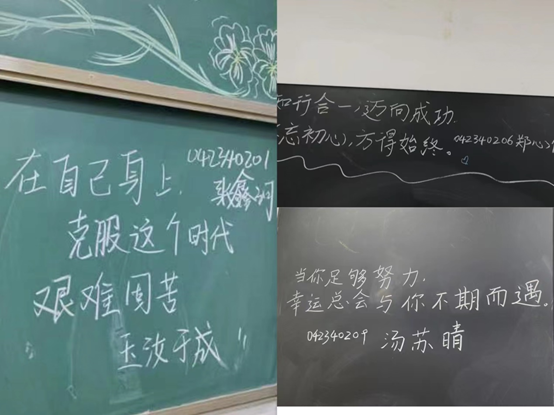 在自己身上. 042340201
克服这个时代
艰难困苦
玉汝于成"
知行合一,迈向成功.
忘初心,方得始终。042340206郑心
当你足够努力.
幸运总会与你不期而遇。
042340209 汤苏晴